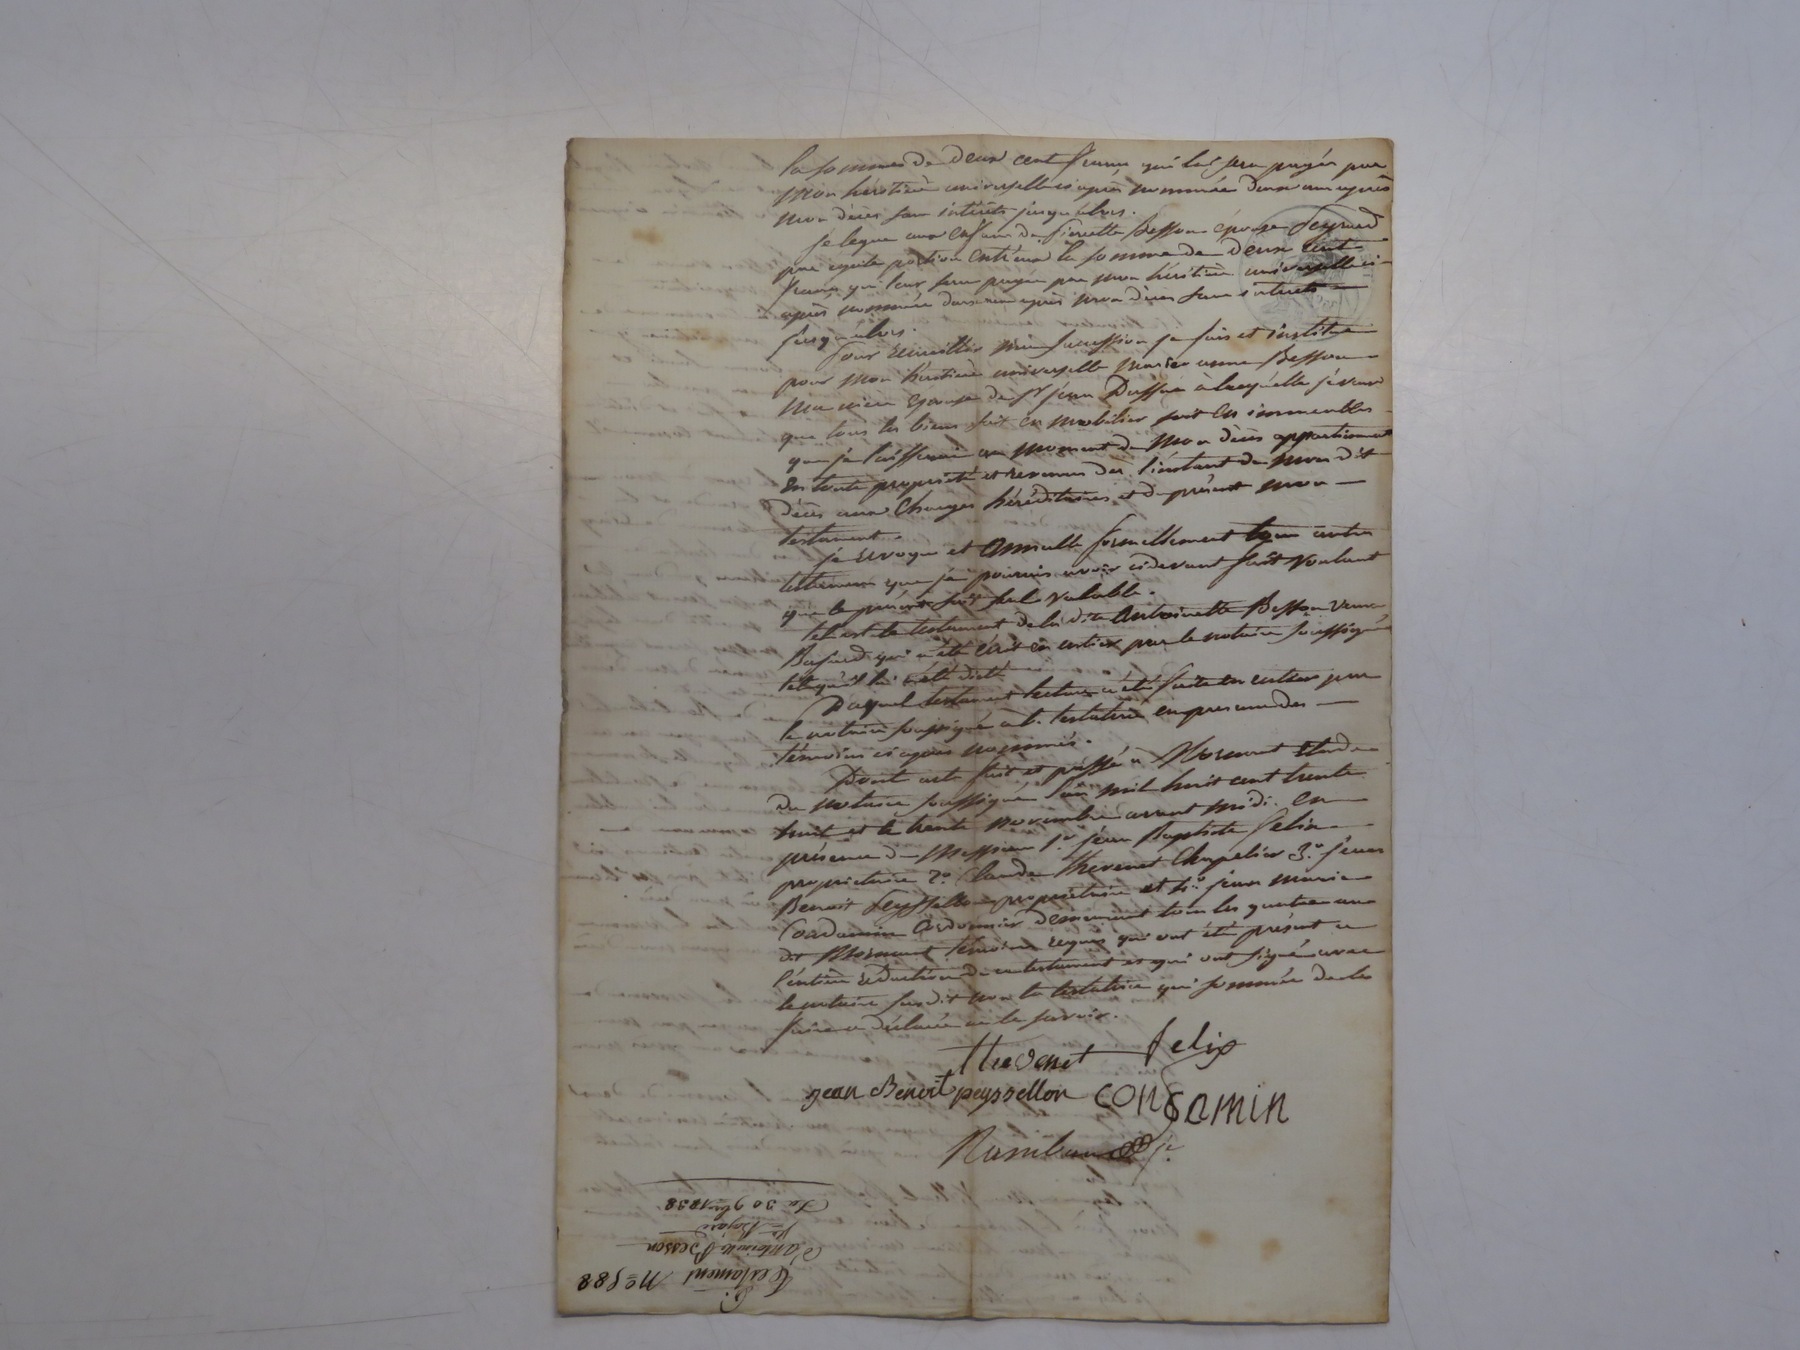 la somme de deux cent francs qui lui sera payée par
mon héritière universelle ci après nommée deux ans après
mon décès sans intérêts jusqu'alors.
Je legue aux enfans de pierrette Besson épouse
par egale portion entr'eux la somme de deux cent
francs qui leur sera payée par mon héritière universelle ci-
après nommée deux ans après mon décès sans intérêts
jusqu'alors.
Pour recueillir ma succession je fais et institue
pour mon héritière universelle marie anne Besson
ma nièce épouse de Sr jean à laquelle je veux
que tous les biens soit en mobilier soit en immeubles
que je laisserai au moment de mon décès appartiennent
en toute propriété et revenus dès l'instant de mon dit
décès aux charges héréditaires et du présent mon
testament.
je revoque et annulle formellement tous autres
testamens que je pourrais avoir cidevant fait voulant
que le présent soit seul valable.
tel est le testament de la dite Antoinette Besson veuve
Bajard qui a été écrit en entier par le notaire soussigné
tel qu'il lui a été dicté.
Duquel testament lecture a été faite en entier par
le notaire soussigné à la testatrice en presence des
témoins ci après nommés.
Dont acte fait et passé à Mornant Etude
du notaire soussigné l'an mil huit cent trente
huit et le trente novembre avant midi. en
présence de Messieurs 1.º jean Baptiste Felix
propriétaire 2.º Claude thevenet chapelier 3.º jean
Benoit Peyssellon propriétaire et 4.º jean marie
Condamin Cordonnier demeurant tous les quatre au
dit Mornant témoins requis qui ont été présent a
l'entière rédaction de ce testament et qui ont signé avec
le notaire susdit non la testatrice qui sommée de le
faire a déclaré ne le savoir.
thevenet felix
jean Benoit peyssellon conDamin
Testament Nº 588
D'antoinette Besson
Ve Bajard
Du 30 9bre 1838